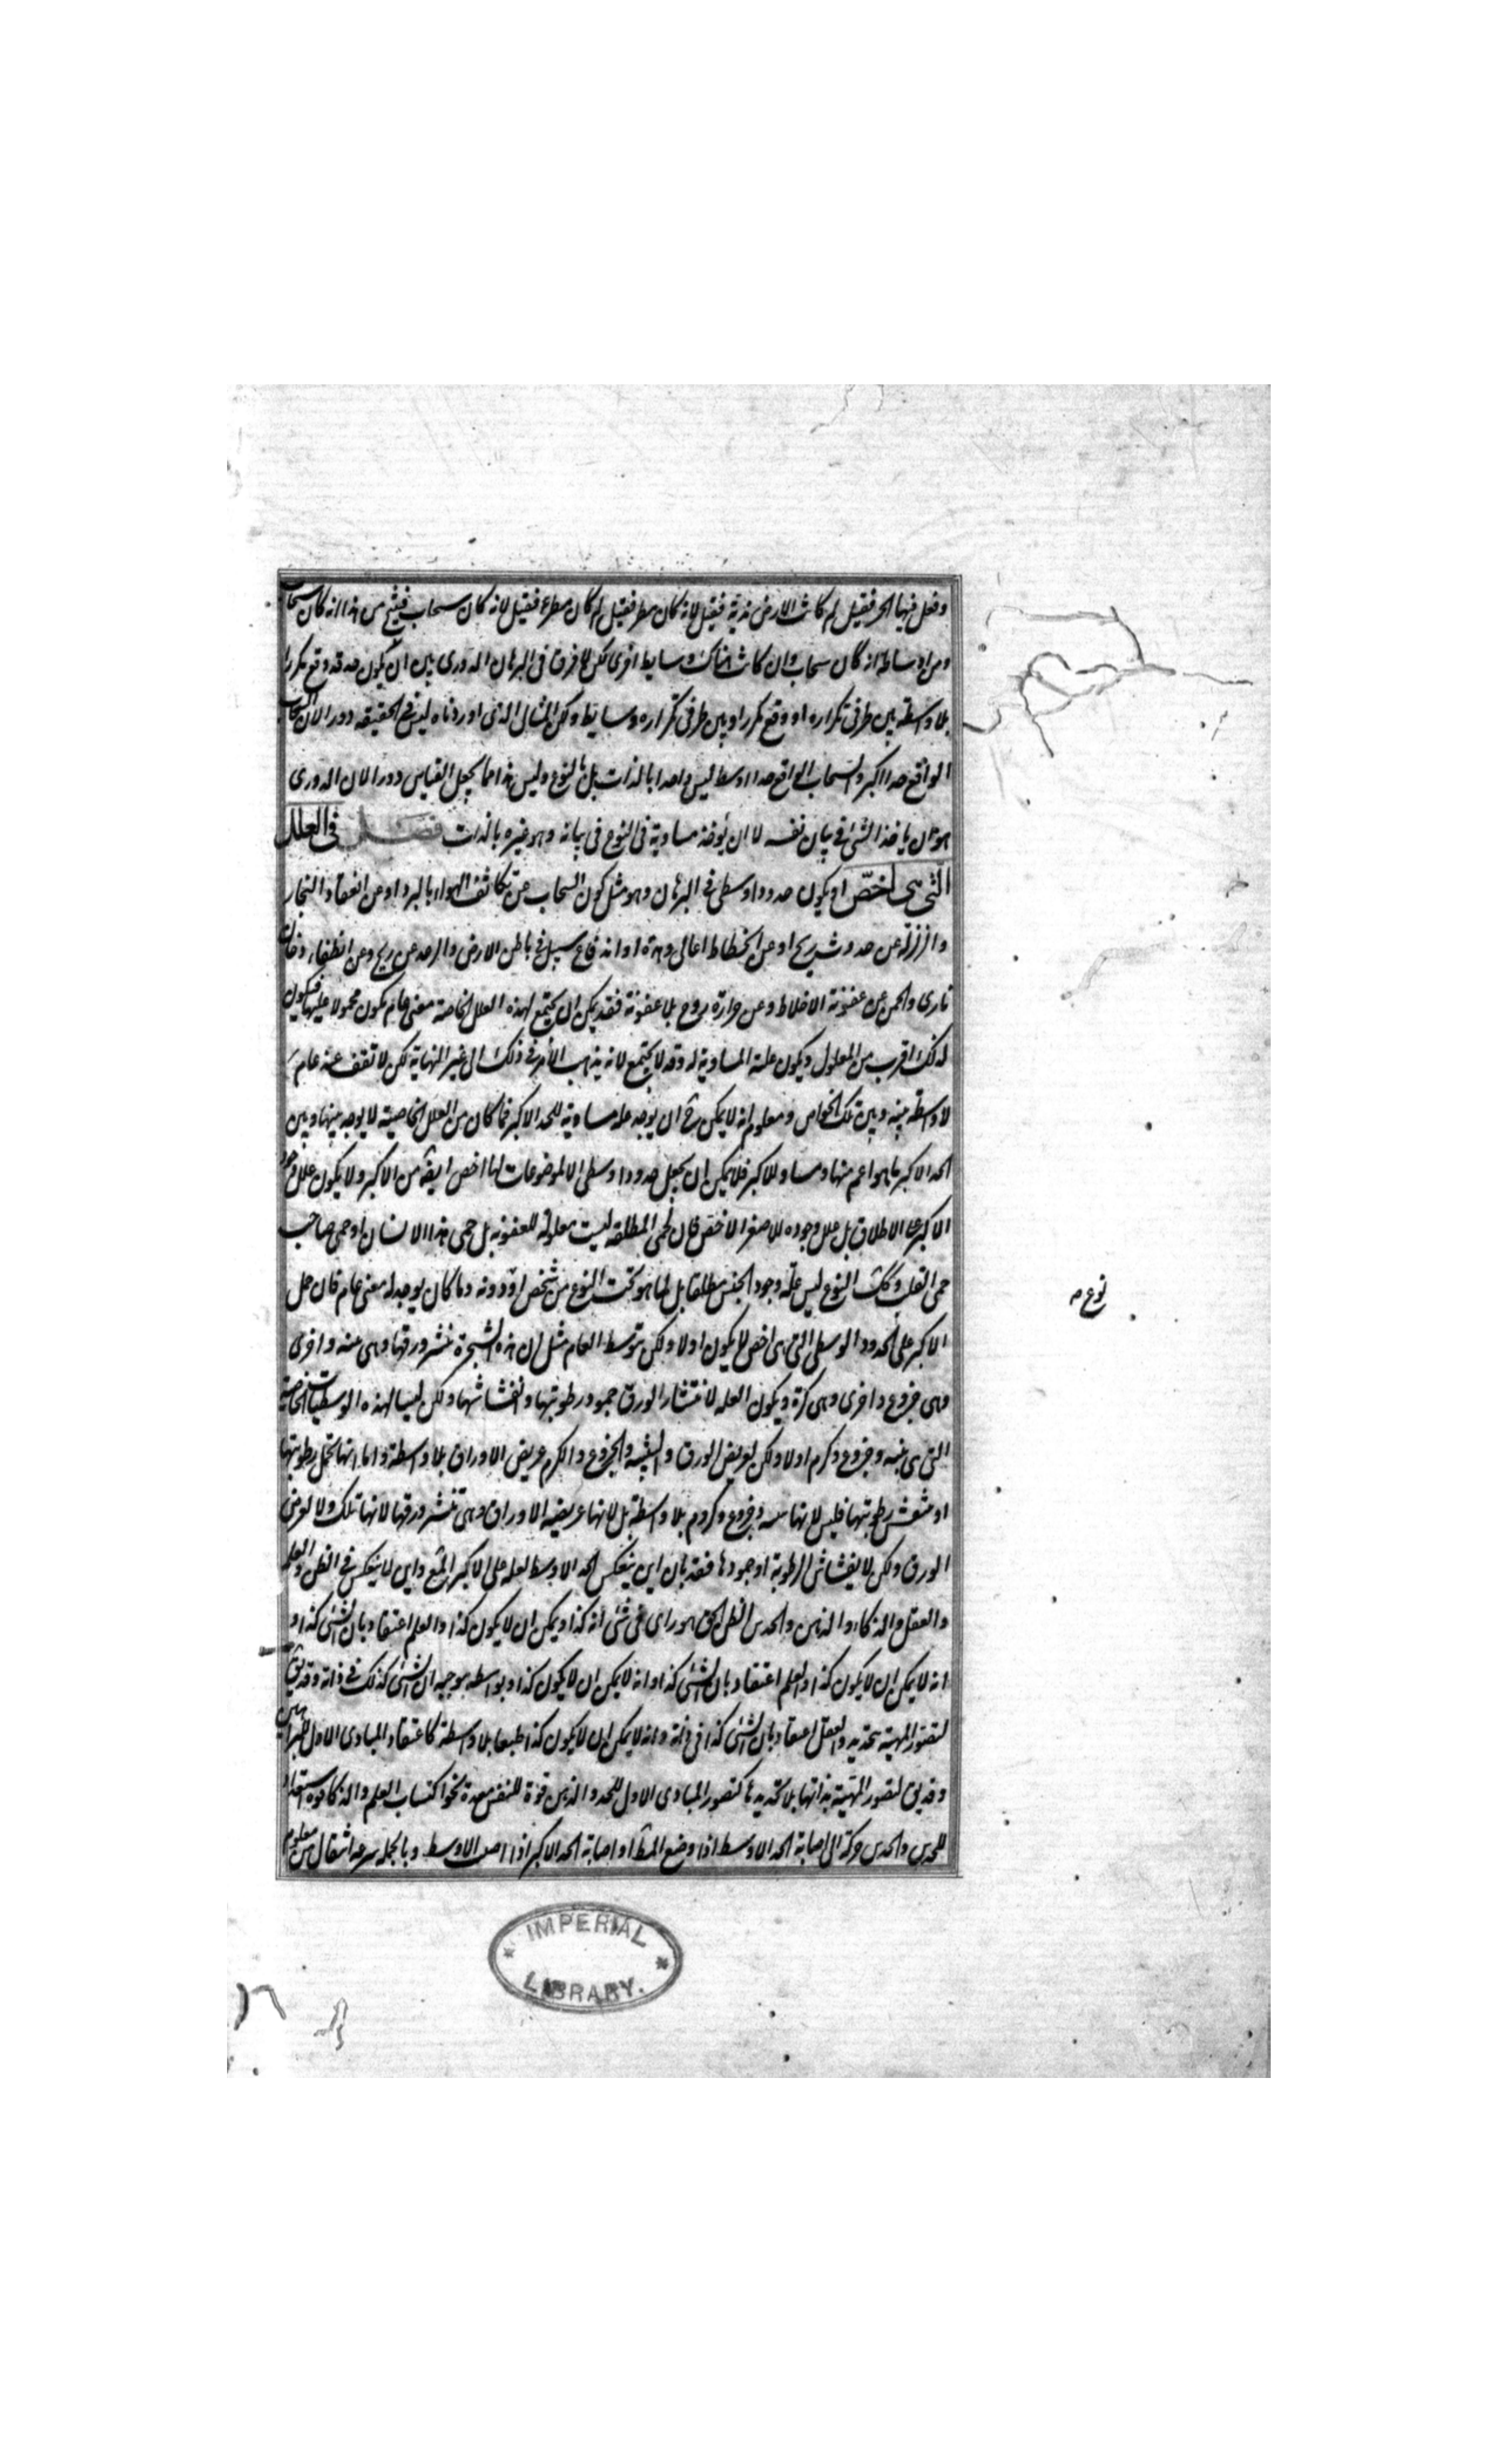 وفعل فيها الحر فقيل لم كانت الارض ندية فقيل لانه كان مطر فقيل لم كان مطر فقيل لانه كان سحاب فينتج من هذا انه كان سحاب
ومن اوساطه انه كان سحاب وان كانت هناك وسايط اخرى لكن لا فرق فى البرهان الدورى بين ان يكون حد قد وقع مكررا
بلا واسطة بين طرفى تكراره او وقع مكررا وبين طرفى تكراره وسايط ولكن المثال الذى اوردناه ليس فى الحقيقة دورا لان السحاب
الواقع حدا اكبر والسحاب الواقع حدا اوسط ليس واحدا بالذات بل بالنوع وليس هذا مما يجعل القياس دورا لان الدورى
هو ان ياخذ الشئ فى بيان نفسه لا ان يؤخذ مساويه فى النوع فى بيانه وهو غيره بالذات فصل فى العلل
التى هى اخص او يكون حدودا وسطى فى البرهان وهو مثل كون السحاب عن تكاثف الهواء بالبرد او عن انعقاد البخار
والزلزلة عن حدوث ريح او عن انحطاط اعالى وهدة او اندفاع سيل فى باطن الارض والرعد عن ريح وعن انطفاء دخان
نارى والحمى عن عفونة الاخلاط وعن حرارة روح بلا عفونة فقد يمكن ان يجتمع لهذه العلل الخاصة معنى عام يكون محمولا عليها فيكون
لذلك اقرب من المعلول ويكون علته المساوية له وقد لا يجتمع لانه يذهب الأمر فى ذلك الى غير النهاية لكن لا تقف عند عام
لا واسطة بينه وبين تلك الخواص ومعلوم انه لا يمكن ح ان يوجد علة مساوية للحد الاكبر فما كان من العلل الخاصية لا يوجد بينها وبين
الحد الاكبر ما هو اعم منها ومساو للاكبر فلا يمكن ان يجعل حدودا وسطى الا لموضوعات لها اخص ايضه من الاكبر ولا يكون علل وجود
الاكبر على الاطلاق بل علل وجوده للاصغر الاخص فان الحمى المطلقة ليست معلولة للعفونه بل حمى هذا الانسان او حمى صاحب
حمى الغب وكك النوع ليس علة وجود الجنس مطلقا بل لما هو تحت النوع من شخص او دونه وما كان يوجد له معنى عام فان حمل
الاكبر على الحدود الوسطى التى هى اخص لا يكون اولا ولكن بتوسط العام مثل ان هذه الشجرة ينتثر ورقها وهى تينه واخرى
وهى خروع واخرى وهى كرمة ويكون العله لانتثار الورق جمود رطوبتها وانفشاشها ولكن ليسا لهذه الوسطيات الخاصة
التى هى تينه وخروع وكرم اولا ولكن لعريض الورق والتينة والخروع والكرم عريض الاوراق بلا واسطة واما انها تحل رطوبتها
او تنفش رطوبتها فليس لانها تينه وخروع وكروم بلا واسطة بل لانها عريضة الاوراق وهى تنتثر ورقها لانها تلك ولا لعرض
الورق ولكن لانفشاش الرطوبة او جمودها فقد بان اين ينعكس الحد الاوسط لعله على الاكبر المتع واين لا ينعكس فى الظن والعلم
والعقل والذكاء والذهن والحدس الظن الحق هو راى فى شئ أنه كذا ويمكن ان لا يكون كذا والعلم اعتقاد بان الشئ كذا و
انه لا يمكن ان لا يكون كذا والعلم اعتقاد بان الشئ كذا وانه لا يمكن ان لا يكون كذا وبواسطة توجبه ان الشئ كذلك فى ذاته وقد يق
لتصور المهية بتحديد والعقل اعتقاد بان الشئ كذا فى ذاته وانه لا يمكن ان لا يكون كذا طبعا بلا واسطة كاعتقاد المبادى الاول للبراهين
وقد يق لتصور المهية بذاتها بلا تحديدها كتصور المبادى الاول للحد والذهن قوة للنفس معدة نحو اكتساب العلم والذكا قوة استعداد
للحدس والحدس حركة الى اصابة الحد الاوسط اذا وضع المط او اصابة الحد الاكبر اذا اصيب الاوسط وبالجملة سرعة انتقال من معلوم
نوع م
IMPERIAL
LIBRARY.